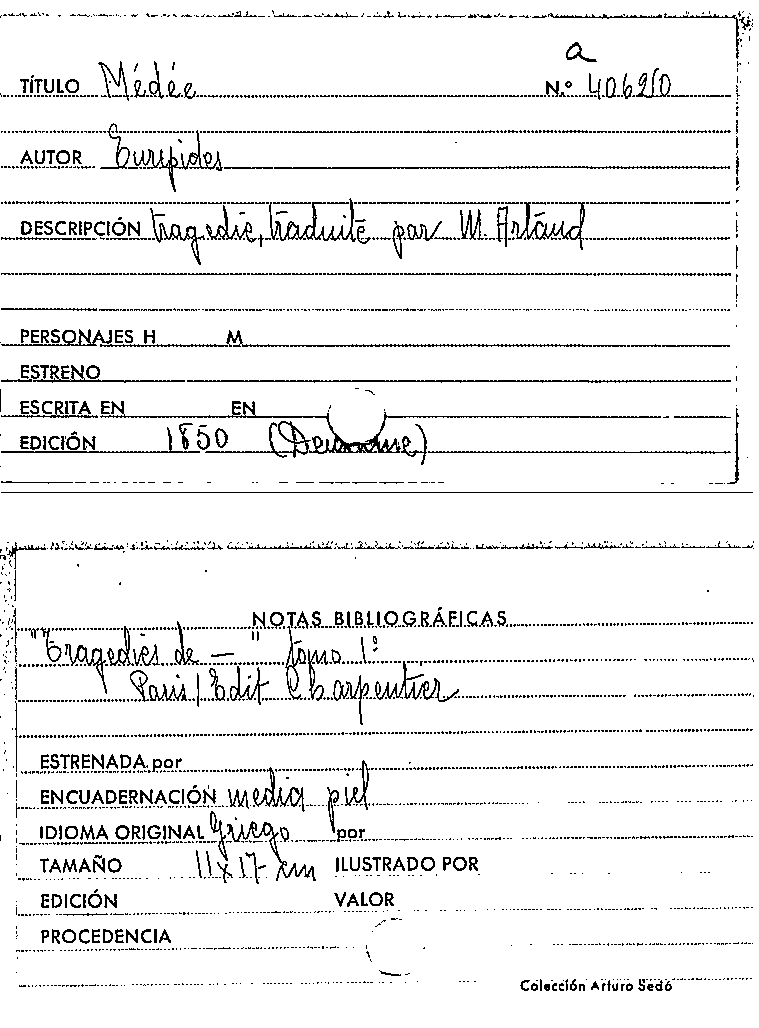 a
TÍTULO Médée N.º 40620
AUTOR Eurípides
DESCRIPCIÓN tragedie, traduite par M. Artaud
PERSONAJES H M
ESTRENO
ESCRITA EN EN
EDICIÓN 1850
NOTAS BIBLIOGRÁFICAS
"Tragedies de — " tomo 1º
Paris / Edit Charpentier
ESTRENADA por
ENCUADERNACIÓN media piel
IDIOMA ORIGINAL Griego por
TAMAÑO 11x17 cm ILUSTRADO POR
EDICIÓN VALOR
PROCEDENCIA
Colección Arturo Sedó